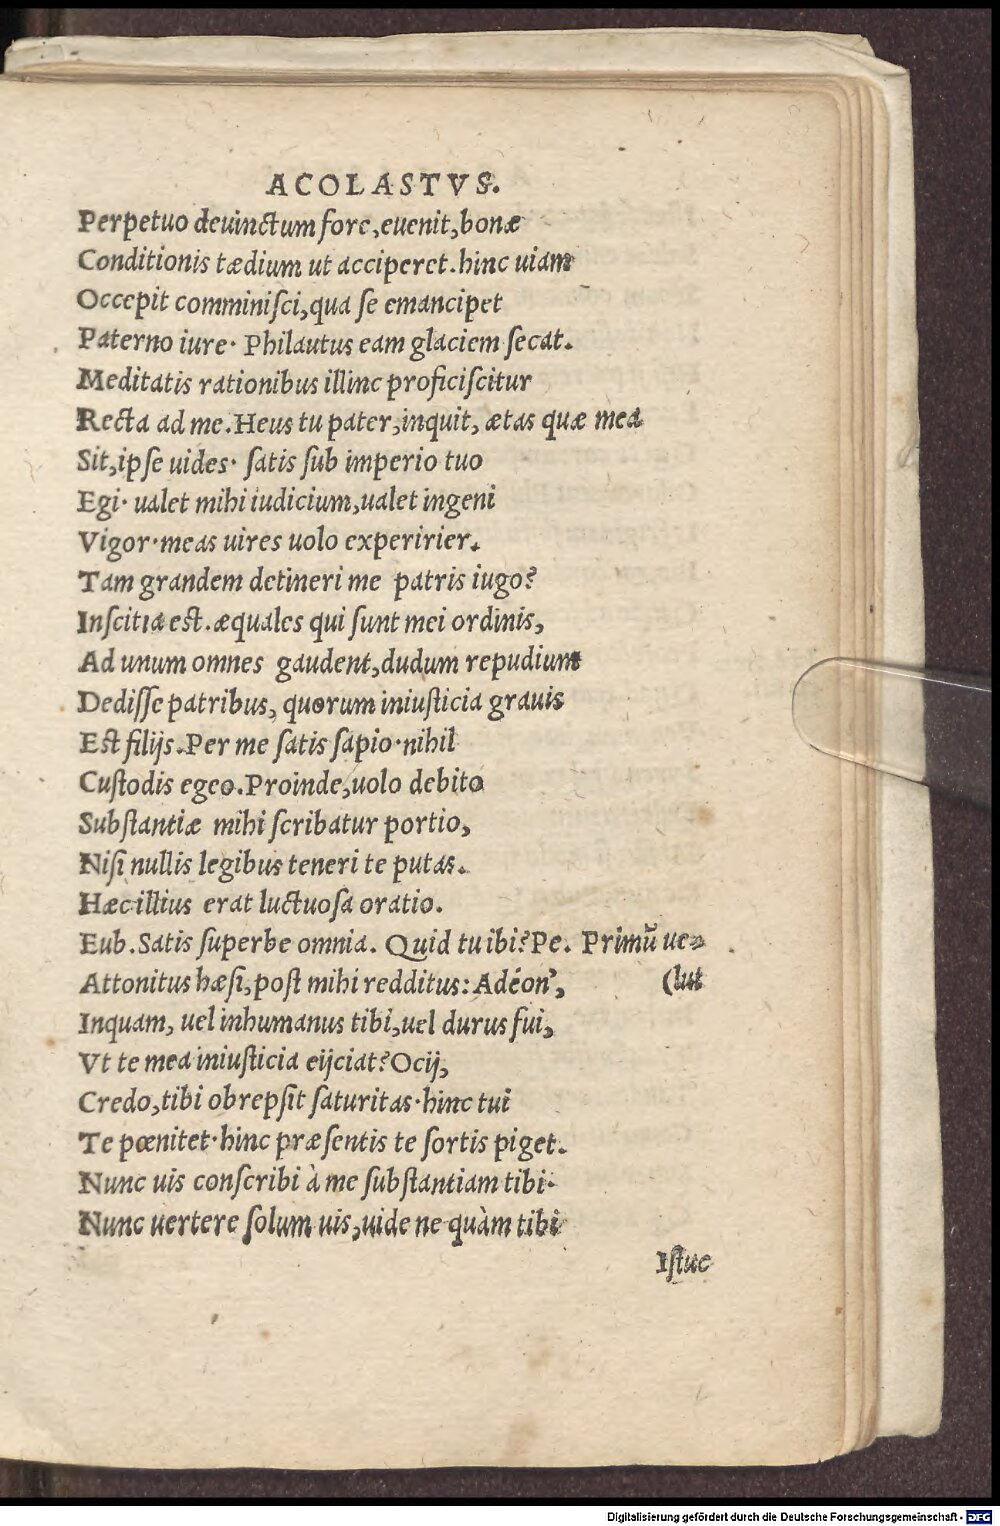 ACOLASTVS.
Perpetuo deuinctum fore, euenit, bonæ
Conditionis tædium ut acciperet. hinc uiam
Occepit comminiſci, qua ſe emancipet
Paterno iure. Philautus eam glaciem ſecat.
Meditatis rationibus illinc proficiſcitur
Recta ad me. Heus tu pater, inquit, ætas quæ mea
Sit, ipſe uides. ſatis ſub imperio tuo
Egi. ualet mihi iudicium, ualet ingeni
Vigor. meas uires uolo experirier.
Tam grandem detineri me patris iugo?
Inſcitia eſt. æquales qui ſunt mei ordinis,
Ad unum omnes gaudent, dudum repudium
Dediſſe patribus, quorum iniuſticia grauis
Eſt filijs. Per me ſatis ſapio. nihil
Cuſtodis egeo. Proinde, uolo debita
Subſtantiæ mihi ſcribatur portio,
Niſi nullis legibus teneri te putas.
Hæc illius erat luctuoſa oratio.
Eub. Satis ſuperbe omnia. Quid tu ibi? Pe. Primũ ue-
Attonitus hæſi, poſt mihi redditus: Adéon', (lut
Inquam, uel inhumanus tibi, uel durus fui,
Vt te mea iniuſticia eijciat? Ocij,
Credo, tibi obrepſit ſaturitas. hinc tui
Te pœnitet. hinc præſentis te ſortis piget.
Nunc uis conſcribi à me ſubſtantiam tibi.
Nunc uertere ſolum uis, uide ne quàm tibi
Iſtuc
Digitalisierung gefördert durch die Deutsche Forschungsgemeinschaft - DFG